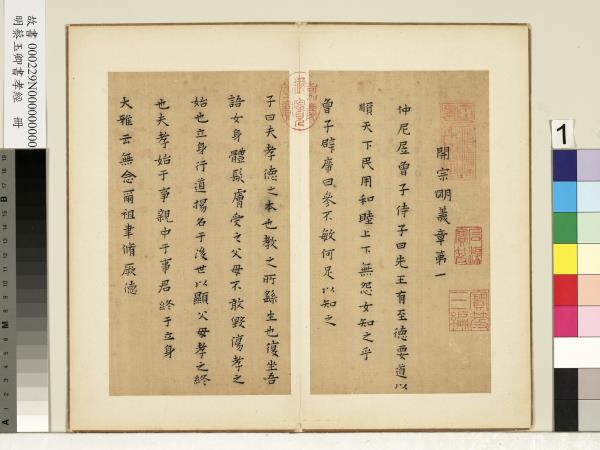 故書 000229N000000000
明蔡玉卿書孝經 冊
開宗明義章第一
仲尼凥曾子侍子曰先王有至德要道以
順天下民用和睦上下無怨女知之乎
曾子辟席曰參不敏何足以知之
子曰夫孝德之本也教之所繇生也復坐吾
語女身體髮膚受之父母不敢毀傷孝之
始也立身行道揚名于後世以顯父母孝之終
也夫孝始于事親中于事君終于立身
大雅云無念爾祖聿脩厥德
1
B
M
A